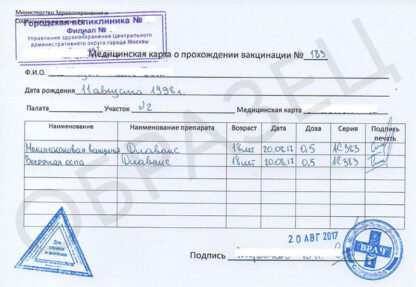 Министерство Здравоохранения и
Городская поликлиника №
Филиал №
Управление здравоохранения Центрального
административного округа города Москвы
Медицинская карта о прохождении вакцинации № 189
Ф.И.О.
Дата рождения 11 августа 1998 г.
Палата Участок №2 Медицинская карта
Наименование Наименование препарата Возраст Дата Доза Серия Подпись печать
вакцина Олавакс 18 лет 20.08.17 0,5 АС383
Ветряная оспа Олавакс 18 лет 20.08.17 0,5 АС383
20 АВГ 2017
Для справок и анализов
ВРАЧ
Подпись
ОБРАЗЕЦ